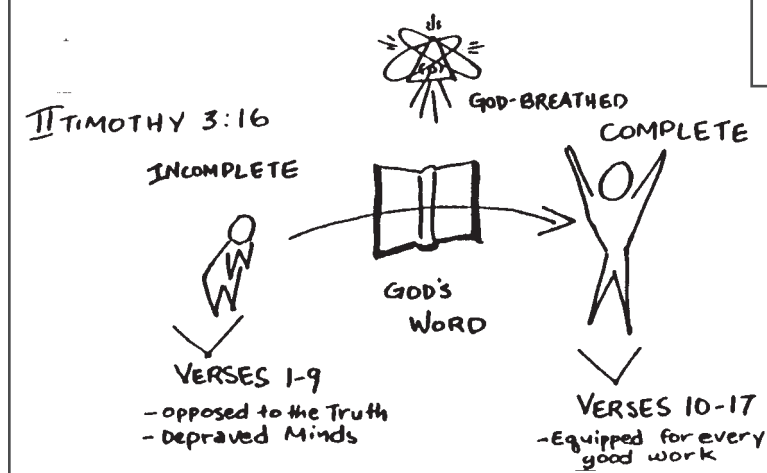 II TIMOTHY 3:16
GOD
GOD-BREATHED
INCOMPLETE
COMPLETE
GOD'S
WORD
VERSES 1-9
- opposed to the Truth
- Depraved Minds
VERSES 10-17
- Equipped for every
good work